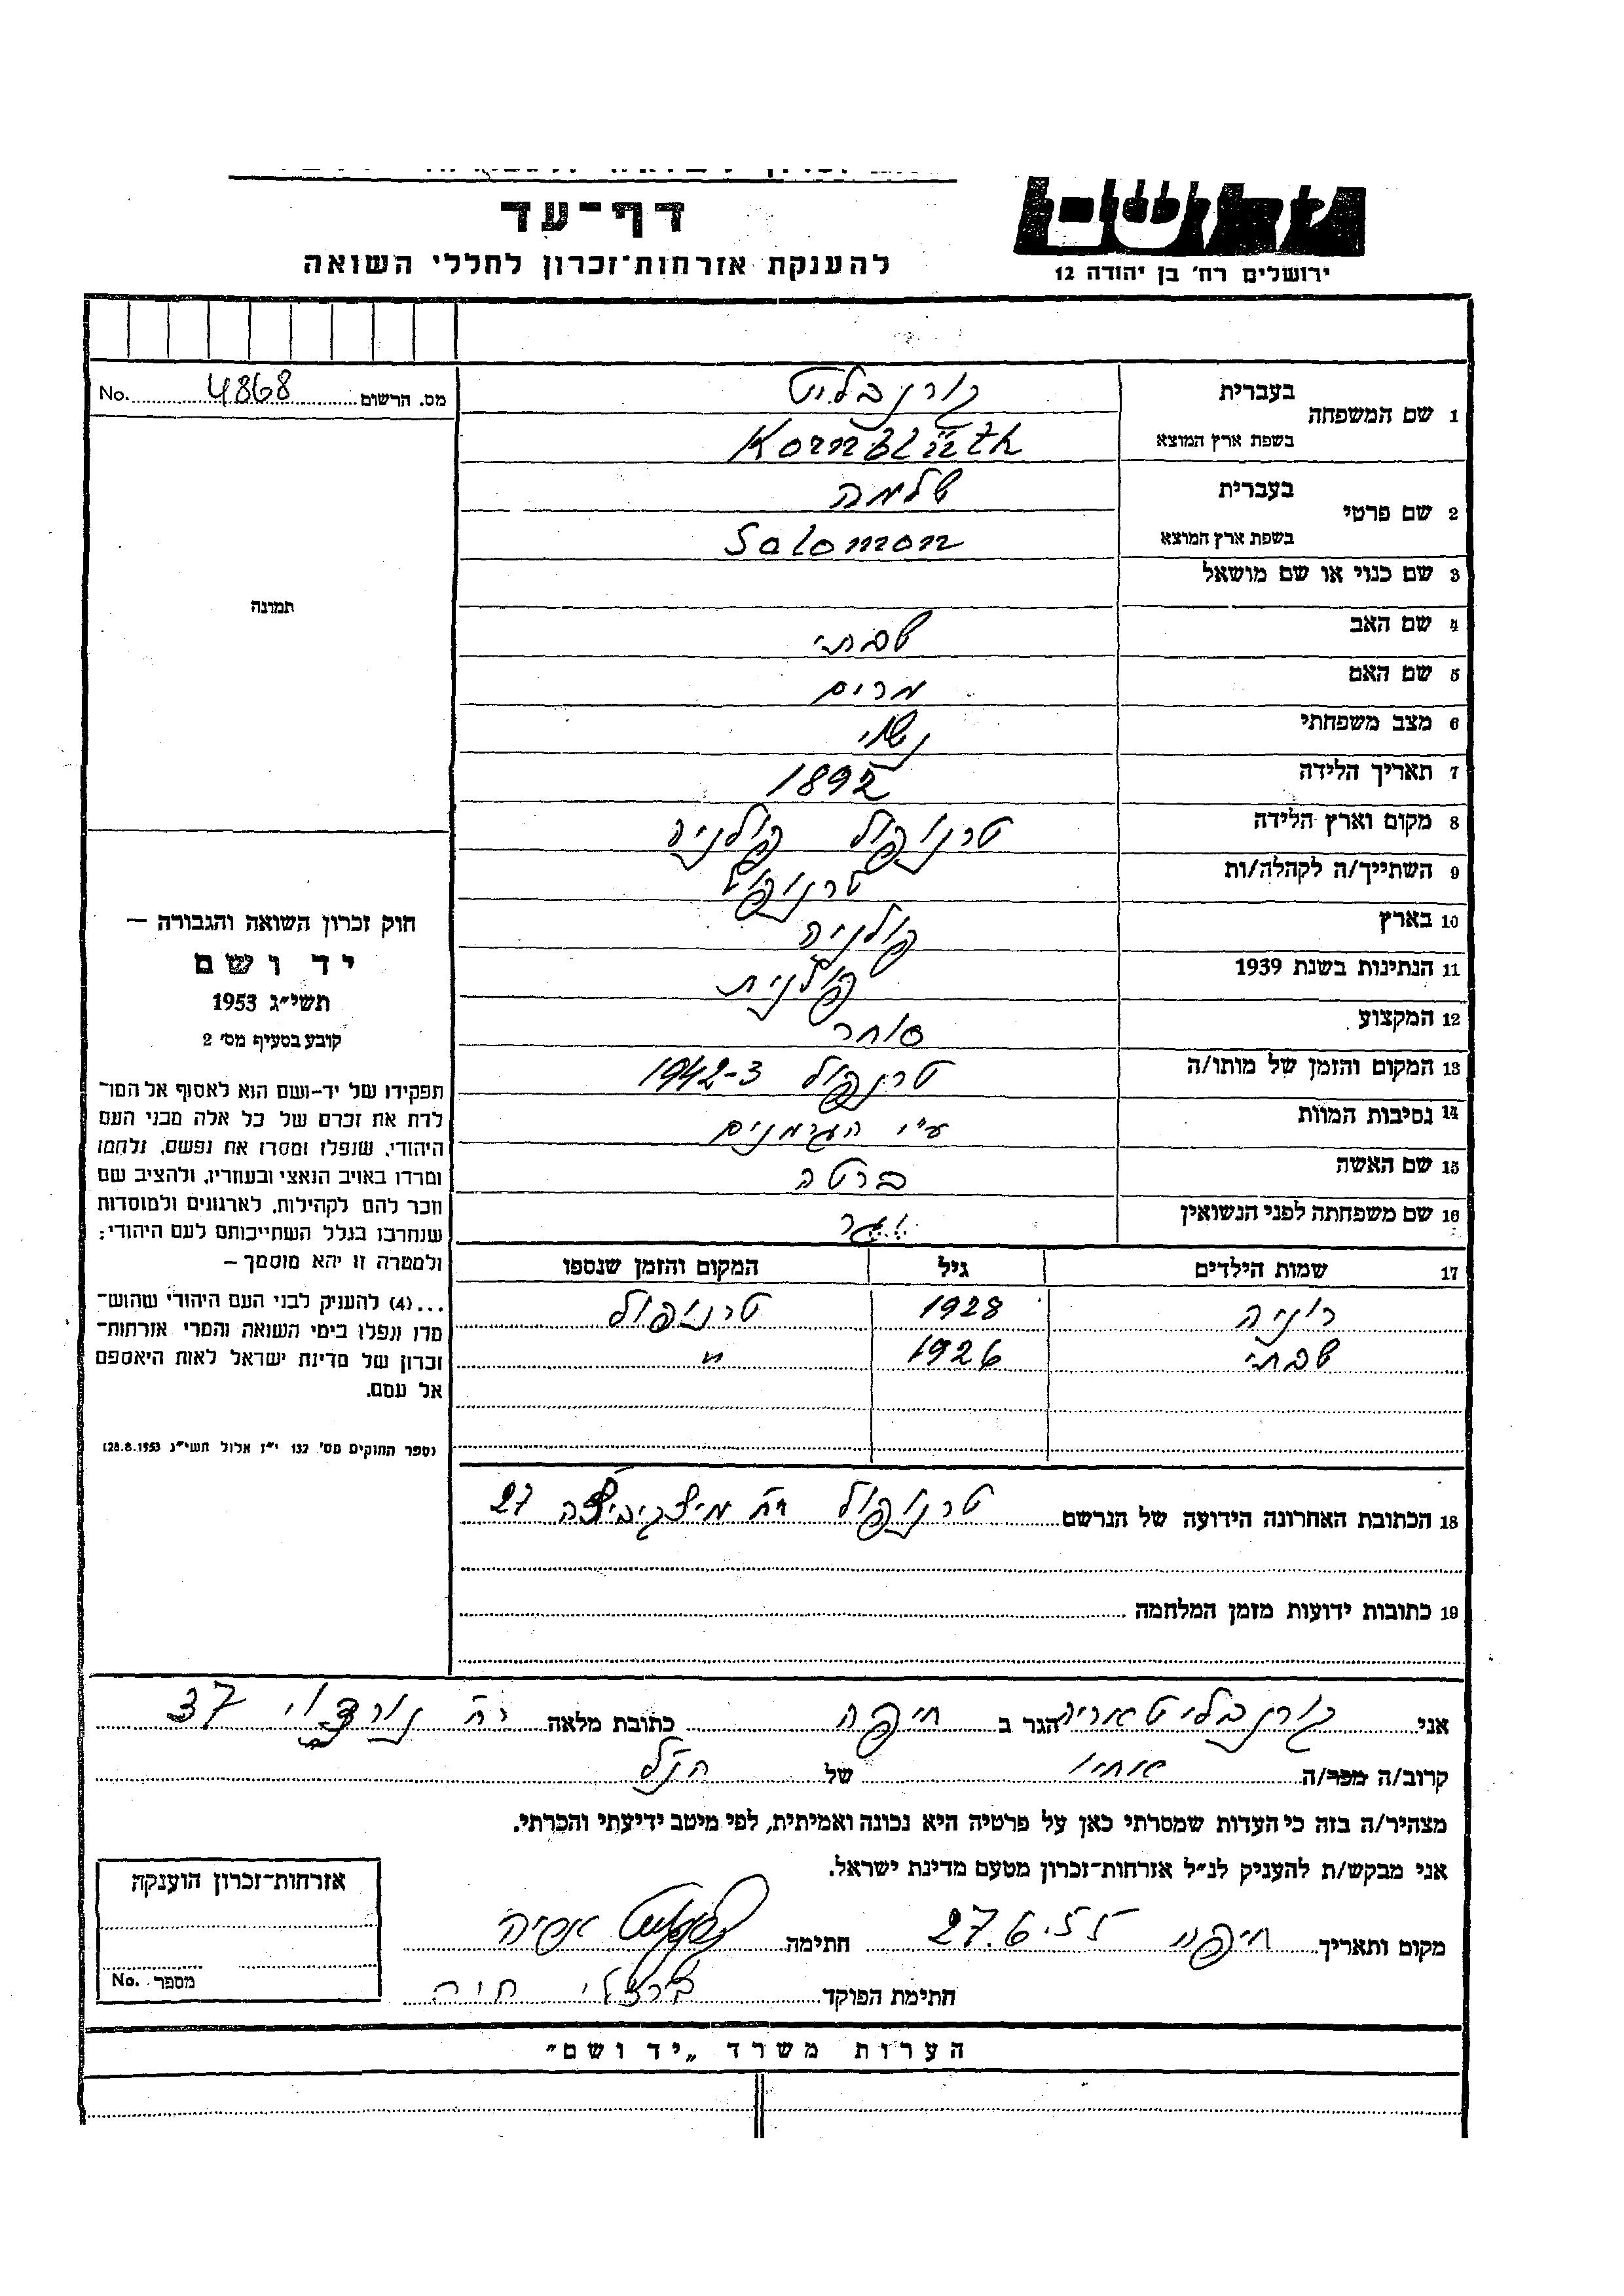 דף־עד
להענקת אזרחות־זכרון לחללי השואה
ירושלים רח' בן יהודה 12
מס. הרשום 4868 No.
תמונה
חוק זכרון השואה והגבורה –
יד ושם
תשי״ג 1953
קובע בסעיף מס' 2
תפקידו של יד-ושם הוא לאסוף אל המו־
לדת את זכרם של כל אלה מבני העם
היהודי, שנפלו ומסרו את נפשם, נלחמו
ומרדו באויב הנאצי ובעוזריו, ולהציב שם
וזכר להם לקהילות, לארגונים ולמוסדות
שנחרבו בגלל השתייכותם לעם היהודי;
ולמטרה זו יהא מוסמך –
...(4) להעניק לבני העם היהודי שהוש־
מדו ונפלו בימי השואה והמרי אזרחות־
זכרון של מדינת ישראל לאות היאספם
אל עמם.
(ספר החוקים מס' 132 י״ז אלול תשי״ג 28.8.1953)
1 שם המשפחה בעברית קורנבליט
בשפת ארץ המוצא Kornblüth
2 שם פרטי בעברית שלמה
בשפת ארץ המוצא Salomon
3 שם כנוי או שם מושאל
4 שם האב שבתי
5 שם האם מרים
6 מצב משפחתי נשוי
7 תאריך הלידה 1892
8 מקום וארץ הלידה טרנופול פולניה
9 השתייך/ה לקהלה/ות טרנופול
10 בארץ פולניה
11 הנתינות בשנת 1939 פולנית
12 המקצוע סוחר
13 המקום והזמן של מותו/ה טרנופול 1942-3
14 נסיבות המוות ע״י הגרמנים
15 שם האשה ברטה
16 שם משפחתה לפני הנשואין
17 שמות הילדים גיל המקום והזמן שנספו
רוניה 1928 טרנופול
שבתי 1926 "
18 הכתובת האחרונה הידועה של הנרשם טרנופול רח' מיצקיביצה 27
19 כתובות ידועות מזמן המלחמה
אני קורנבליט אריה הגר ב חיפה כתובת מלאה רח' נורדוי 37
קרוב/ה מכר/ה אחיו של הנ״ל
מצהיר/ה בזה כי העדות שמסרתי כאן על פרטיה היא נכונה ואמיתית, לפי מיטב ידיעתי והכרתי.
אני מבקש/ת להעניק לנ״ל אזרחות־זכרון מטעם מדינת ישראל.
מקום ותאריך חיפה 27.6.55 חתימה
חתימת הפוקד ברזלי חיה
אזרחות־זכרון הוענקה
מספר No.
הערות משרד „יד ושם״